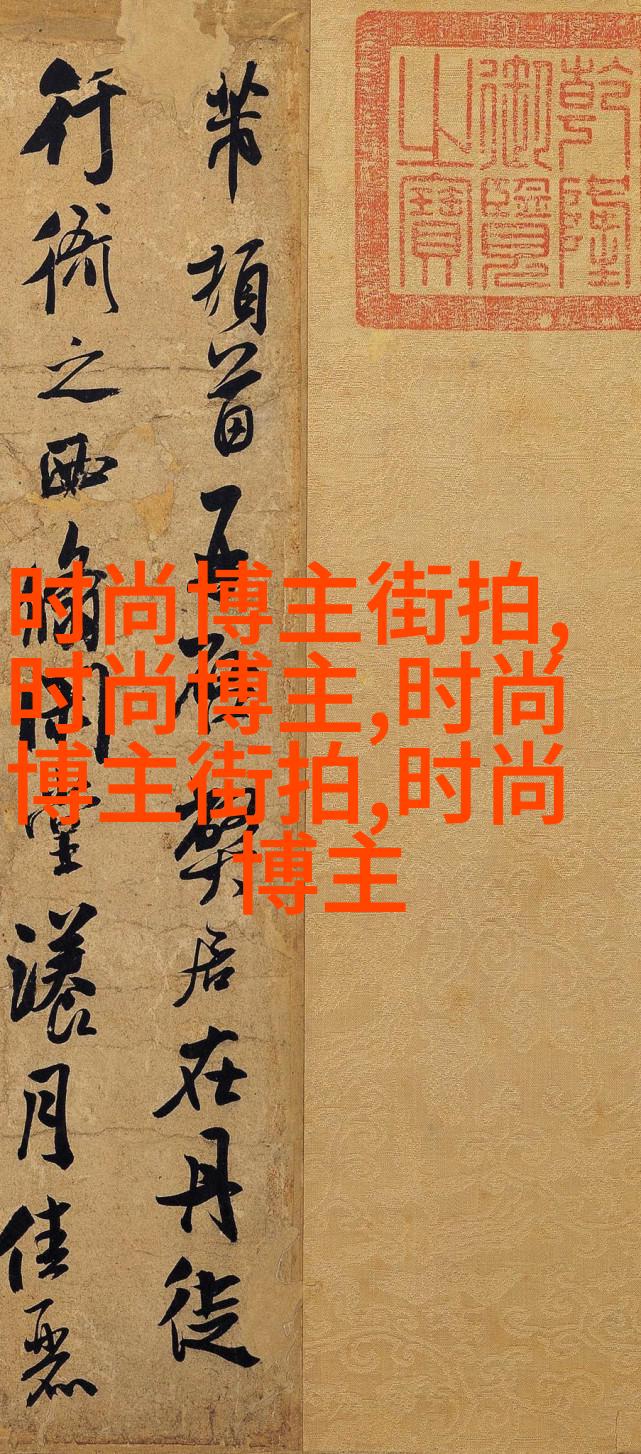 乾隆
御覽
之寶
芾頓首再啓獘居在丹徒
行衙之西翛閑堂漾月佳麗
时尚博主街拍,
时尚博主,时尚
博主街拍,时尚
博主